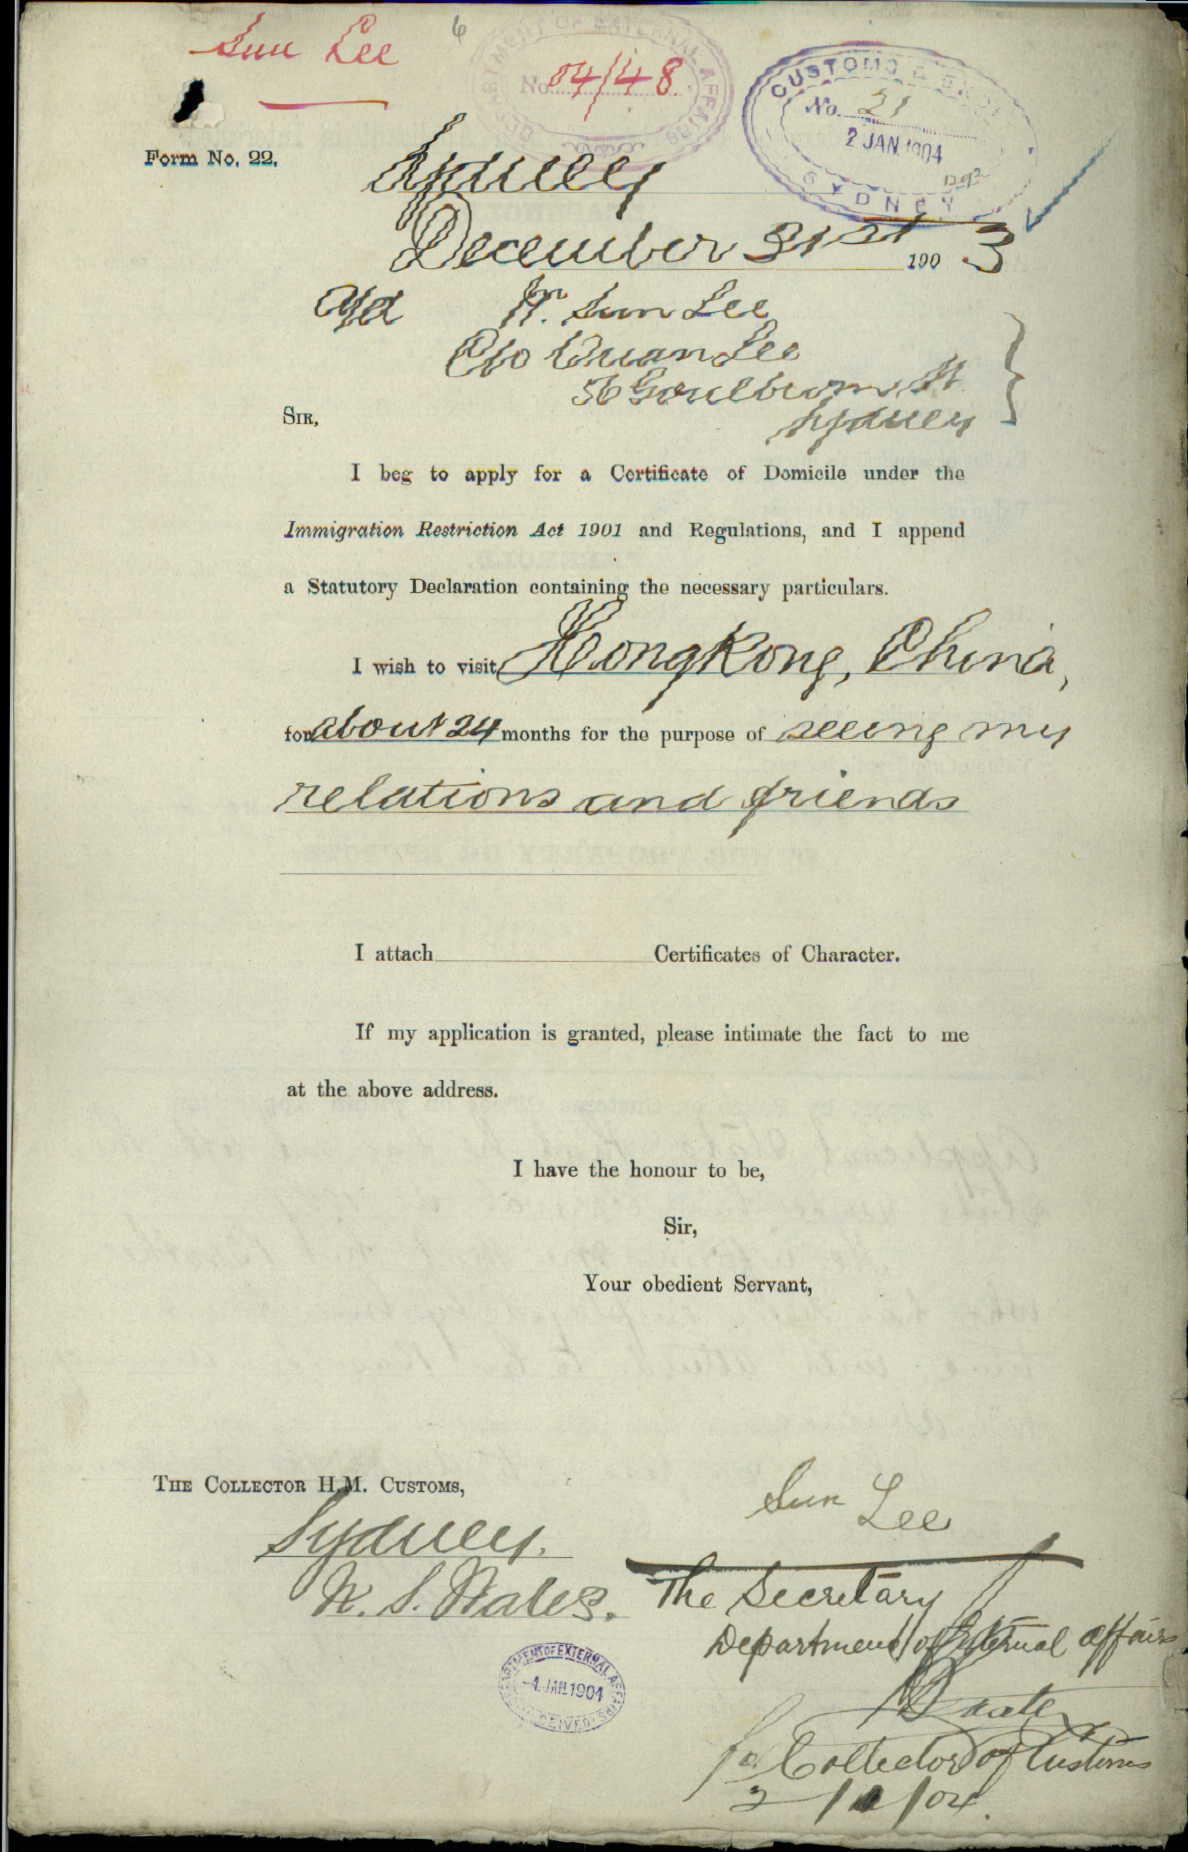 Sun Lee
6
DEPARTMENT OF EXTERNAL AFFAIRS
No. 04/48
CUSTOMS &
No. 21
2 JAN. 1904
SYDNEY
Form No. 22.
Sydney
December 31st 1903
Mr. Sun Lee
C/o Quan Lee
56 Goulburn St
Sydney
SIR,
I beg to apply for a Certificate of Domicile under the
Immigration Restriction Act 1901 and Regulations, and I append
a Statutory Declaration containing the necessary particulars.
I wish to visit HongKong, China,
for about 24 months for the purpose of seeing my
relations and friends
I attach Certificates of Character.
If my application is granted, please intimate the fact to me
at the above address.
I have the honour to be,
Sir,
Your obedient Servant,
THE COLLECTOR H.M. CUSTOMS,
Sydney.
N. S. Wales.
Sun Lee
The Secretary
Department of External Affairs
DEPARTMENT OF EXTERNAL AFFAIRS
-4. JAN 1904
RECEIVED
Collector of Customs
2/1/04.